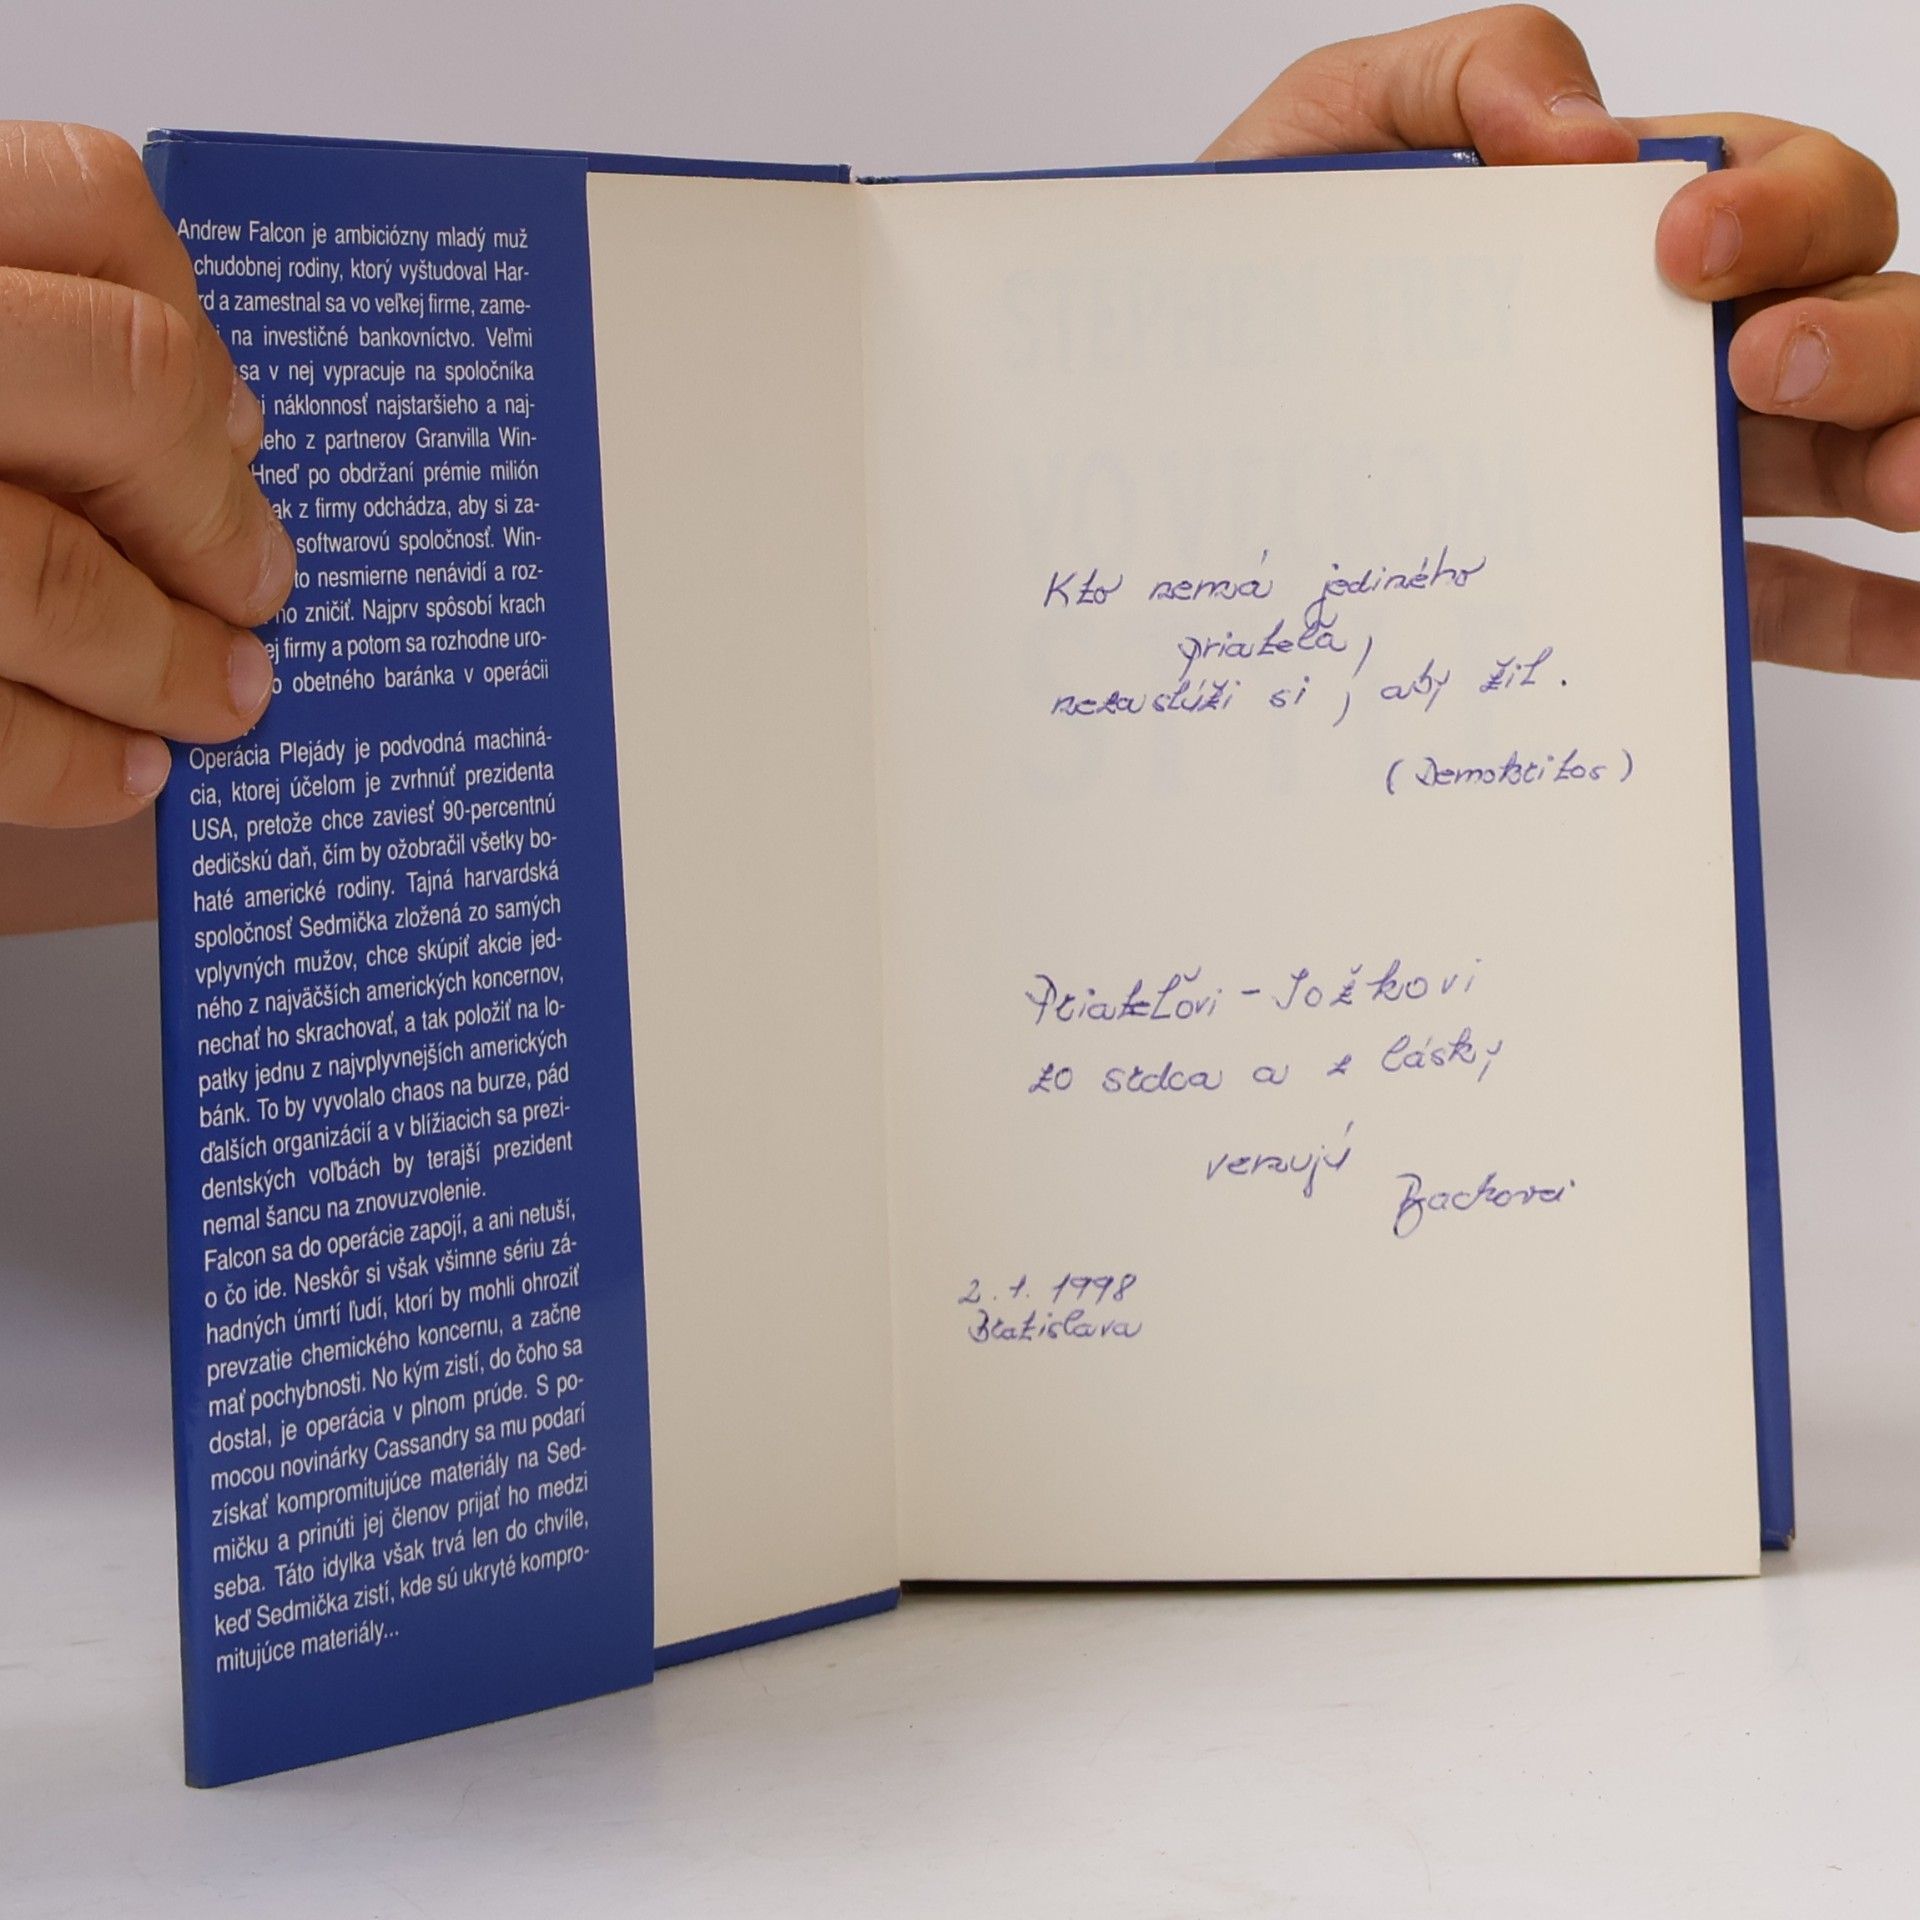 Andrew Falcon je ambiciózny mladý muž
chudobnej rodiny, ktorý vyštudoval Har-
rd a zamestnal sa vo veľkej firme, zame-
i na investičné bankovníctvo. Veľmi
sa v nej vypracuje na spoločníka
i náklonnosť najstaršieho a naj-
ieho z partnerov Granvilla Win-
Hneď po obdržaní prémie milión
ak z firmy odchádza, aby si za-
softwarovú spoločnosť. Win-
to nesmierne nenávidí a roz-
ho zničiť. Najprv spôsobí krach
ej firmy a potom sa rozhodne uro-
o obetného baránka v operácii
Operácia Plejády je podvodná machiná-
cia, ktorej účelom je zvrhnúť prezidenta
USA, pretože chce zaviesť 90-percentnú
dedičskú daň, čím by ožobračil všetky bo-
haté americké rodiny. Tajná harvardská
spoločnosť Sedmička zložená zo samých
vplyvných mužov, chce skúpiť akcie jed-
ného z najväčších amerických koncernov,
nechať ho skrachovať, a tak položiť na lo-
patky jednu z najvplyvnejších amerických
bánk. To by vyvolalo chaos na burze, pád
ďalších organizácií a v blížiacich sa prezi-
dentských voľbách by terajší prezident
nemal šancu na znovuzvolenie.
Falcon sa do operácie zapojí, a ani netuší,
o čo ide. Neskôr si však všimne sériu zá-
hadných úmrtí ľudí, ktorí by mohli ohroziť
prevzatie chemického koncernu, a začne
mať pochybnosti. No kým zistí, do čoho sa
dostal, je operácia v plnom prúde. S po-
mocou novinárky Cassandry sa mu podarí
získať kompromitujúce materiály na Sed-
mičku a prinúti jej členov prijať ho medzi
seba. Táto idylka však trvá len do chvíle,
keď Sedmička zistí, kde sú ukryté kompro-
mitujúce materiály...
Kto nemá jediného
priateľa,
nezaslúži si, aby žil.
(Demokritos)
Priateľovi - Jožkovi
zo srdca a z lásky
venujú
2. 1. 1998
Bratislava